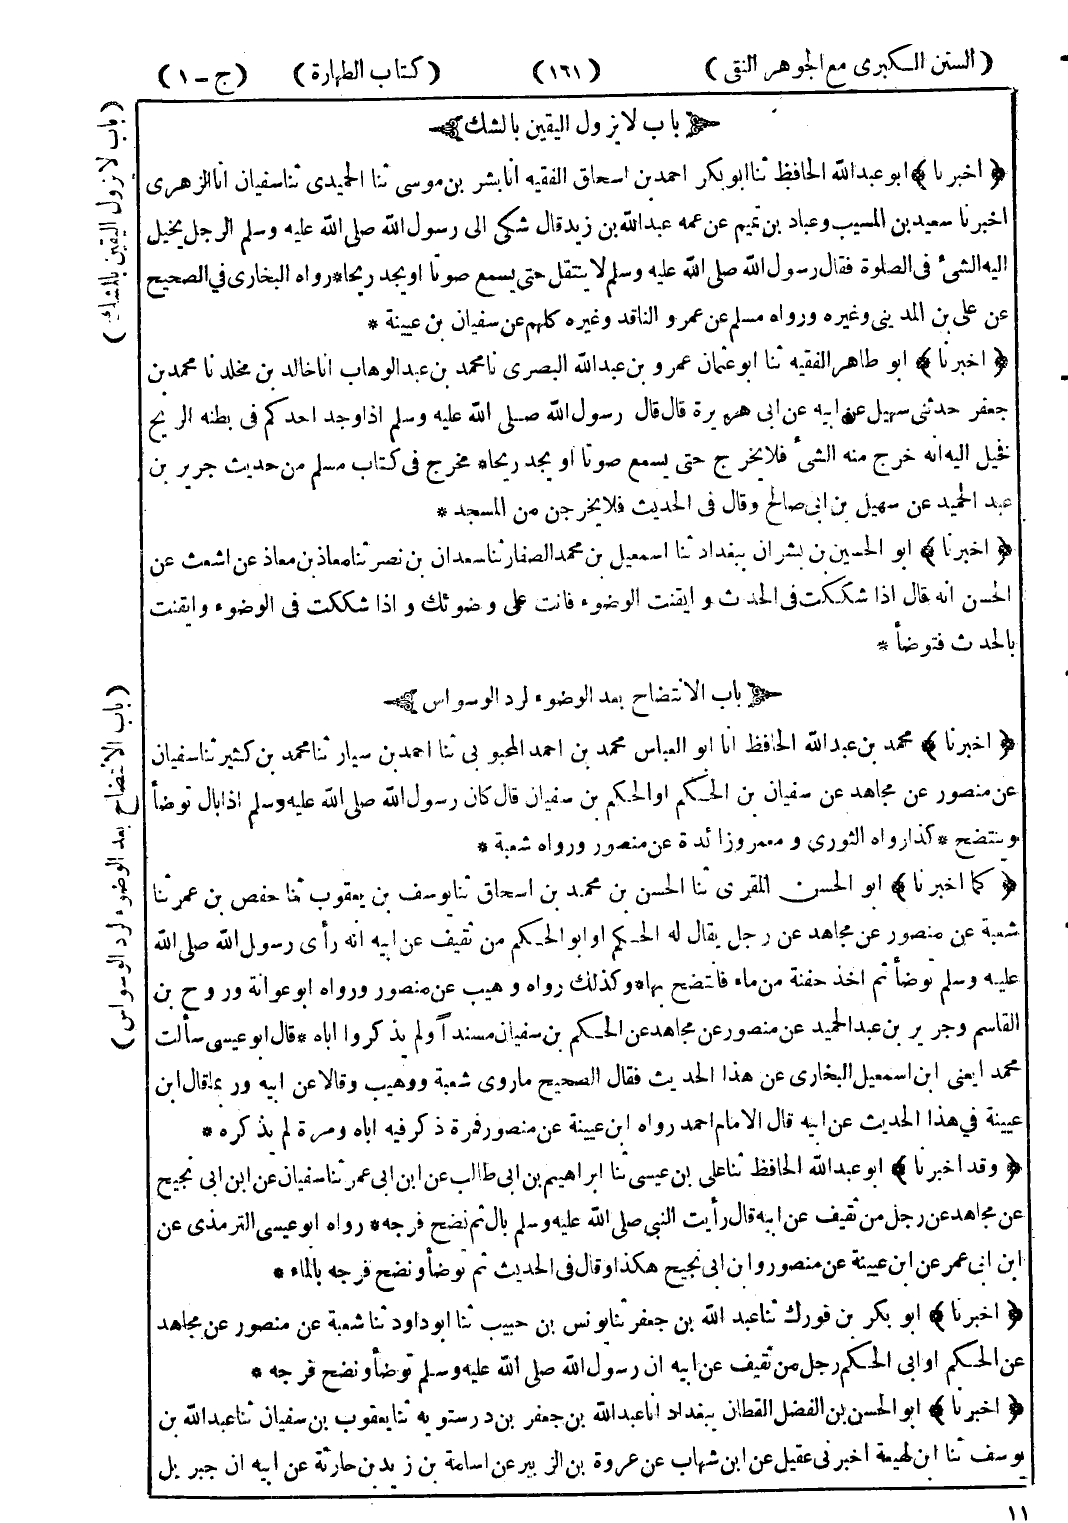 (السنن الكبرى مع الجوهر النقى) (١٦١) (كتاب الطهارة) (ج - ١)
باب لا يزول اليقين بالشك
﴿ اخبرنا ﴾ ابو عبدالله الحافظ ثنا ابو بكر احمد بن اسحاق الفقيه أنا بشر بن موسى ثنا الحميدى ثنا سفيان انا الزهرى
اخبرنا سعيد بن المسيب وعباد بن تميم عن عمه عبدالله بن زيد قال شكى الى رسول الله صلى الله عليه وسلم الرجل يخيل
اليه الشئ فى الصلوة فقال رسول الله صلى الله عليه وسلم لا ينتقل حتى يسمع صوتا او يجد ريحا* رواه البخارى فى الصحيح
عن على بن المدينى وغيره ورواه مسلم عن عمرو الناقد وغيره كلهم عن سفيان بن عيينة *
﴿ اخبرنا ﴾ ابو طاهر الفقيه ثنا ابو عثمان عمرو بن عبدالله البصرى نا محمد بن عبدالوهاب انا خالد بن مخلد نا محمد بن
جعفر حدثنى سهيل عن ابيه عن ابى هريرة قال قال رسول الله صلى الله عليه وسلم اذا وجد احدكم فى بطنه الريح
فخيل اليه انه خرج منه الشئ فلا يخرج حتى يسمع صوتا او يجد ريحا* مخرج فى كتاب مسلم من حديث جرير بن
عبد الحميد عن سهيل بن ابى صالح وقال فى الحديث فلا يخرجن من المسجد *
﴿ اخبرنا ﴾ ابو الحسين بن بشران ببغداد ثنا اسمعيل بن محمد الصفار ثنا سعدان بن نصر ثنا معاذ بن معاذ عن اشعث عن
الحسن انه قال اذا شككت فى الحدث وايقنت الوضوء فانت على وضوئك واذا شككت فى الوضوء وايقنت
بالحدث فتوضأ *
باب الانتضاح بعد الوضوء لرد الوسواس
﴿ اخبرنا ﴾ محمد بن عبدالله الحافظ انا ابو العباس محمد بن احمد المحبوبى ثنا احمد بن سيار ثنا محمد بن كثير ثنا سفيان
عن منصور عن مجاهد عن سفيان بن الحكم او الحكم بن سفيان قال كان رسول الله صلى الله عليه وسلم اذا بال توضأ
وينتضح * كذا رواه الثورى ومعمر وزائدة عن منصور ورواه شعبة *
﴿ كما اخبرنا ﴾ ابو الحسن المقرى ثنا الحسن بن محمد بن اسحاق ثنا يوسف بن يعقوب ثنا حفص بن عمر ثنا
شعبة عن منصور عن مجاهد عن رجل يقال له الحكم او ابو الحكم من ثقيف عن ابيه انه رأى رسول الله صلى الله
عليه وسلم توضأ ثم اخذ حفنة من ماء فانتضح بها* وكذلك رواه وهيب عن منصور ورواه ابو عوانة وروح بن
القاسم وجرير بن عبدالحميد عن منصور عن مجاهد عن الحكم بن سفيان مسنداً ولم يذكروا اباه* قال ابو عيسى سألت
محمد ايعنى ابن اسمعيل البخارى عن هذا الحديث فقال الصحيح ماروى شعبة ووهيب وقالا عن ابيه وربما قال ابن
عيينة فى هذا الحديث عن ابيه قال الامام احمد رواه ابن عيينة عن منصور فمرة ذكر فيه اباه ومرة لم يذكره *
﴿ وقد اخبرنا ﴾ ابو عبدالله الحافظ ثنا على بن عيسى ثنا ابراهيم بن ابى طالب عن ابن ابى عمر ثنا سفيان عن ابن ابى نجيح
عن مجاهد عن رجل من ثقيف عن ابيه قال رأيت النبى صلى الله عليه وسلم بال ثم نضح فرجه* رواه ابو عيسى الترمذى عن
ابن ابى عمر عن ابن عيينة عن منصور وابن ابى نجيح هكذا وقال فى الحديث ثم توضأ ونضح فرجه بالماء *
﴿ اخبرنا ﴾ ابو بكر بن فورك ثنا عبد الله بن جعفر ثنا يونس بن حبيب ثنا ابو داود ثنا شعبة عن منصور عن مجاهد
عن الحكم او ابى الحكم رجل من ثقيف عن ابيه ان رسول الله صلى الله عليه وسلم توضأ ونضح فرجه *
﴿ اخبرنا ﴾ ابو الحسين بن الفضل القطان ببغداد انا عبدالله بن جعفر بن درستويه ثنا يعقوب بن سفيان ثنا عبدالله بن
يوسف ثنا ابن لهيعة اخبرنى عقيل عن ابن شهاب عن عروة بن الزبير عن اسامة بن زيد بن حارثة عن ابيه ان جبريل
(باب لا يزول اليقين بالشك)
(باب الانتضاح بعد الوضوء لرد الوسواس)
١١